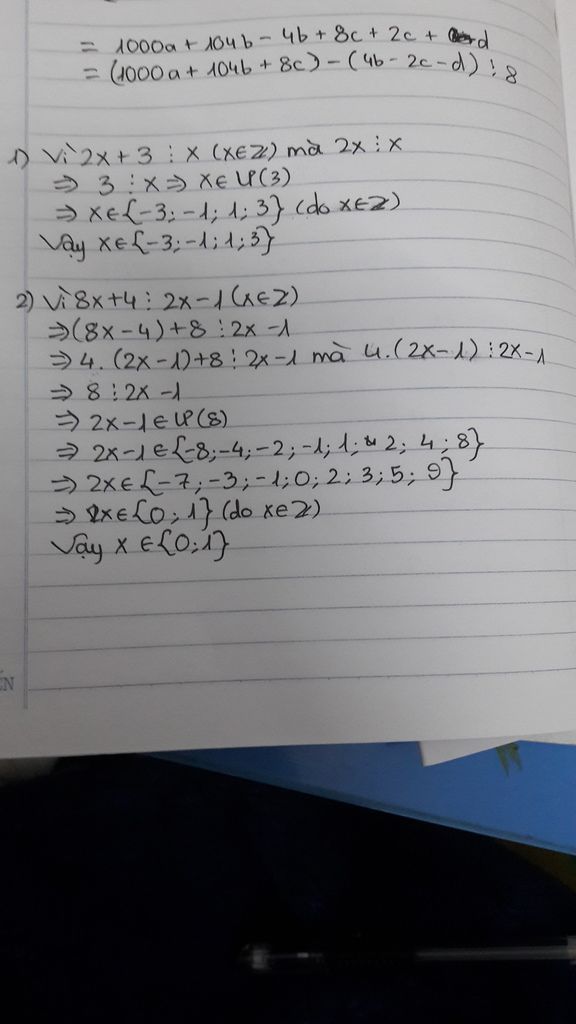 = 1000a + 104b - 4b + 8c + 2c + d
= (1000a + 104b + 8c) - (4b - 2c - d) ⋮ 8
1) Vì 2x + 3 ⋮ x (x∈Z) mà 2x ⋮ x
⇒ 3 ⋮ x ⇒ x∈Ư(3)
⇒ x∈{-3; -1; 1; 3} (do x∈Z)
Vậy x∈{-3; -1; 1; 3}
2) Vì 8x+4 ⋮ 2x-1 (x∈Z)
⇒ (8x-4)+8 ⋮ 2x-1
⇒ 4.(2x-1)+8 ⋮ 2x-1 mà 4.(2x-1) ⋮ 2x-1
⇒ 8 ⋮ 2x-1
⇒ 2x-1∈Ư(8)
⇒ 2x-1∈{-8;-4;-2;-1;1; 2; 4; 8}
⇒ 2x∈{-7; -3; -1; 0; 2; 3; 5; 9}
⇒ x∈{0; 1} (do x∈Z)
Vậy x ∈{0;1}